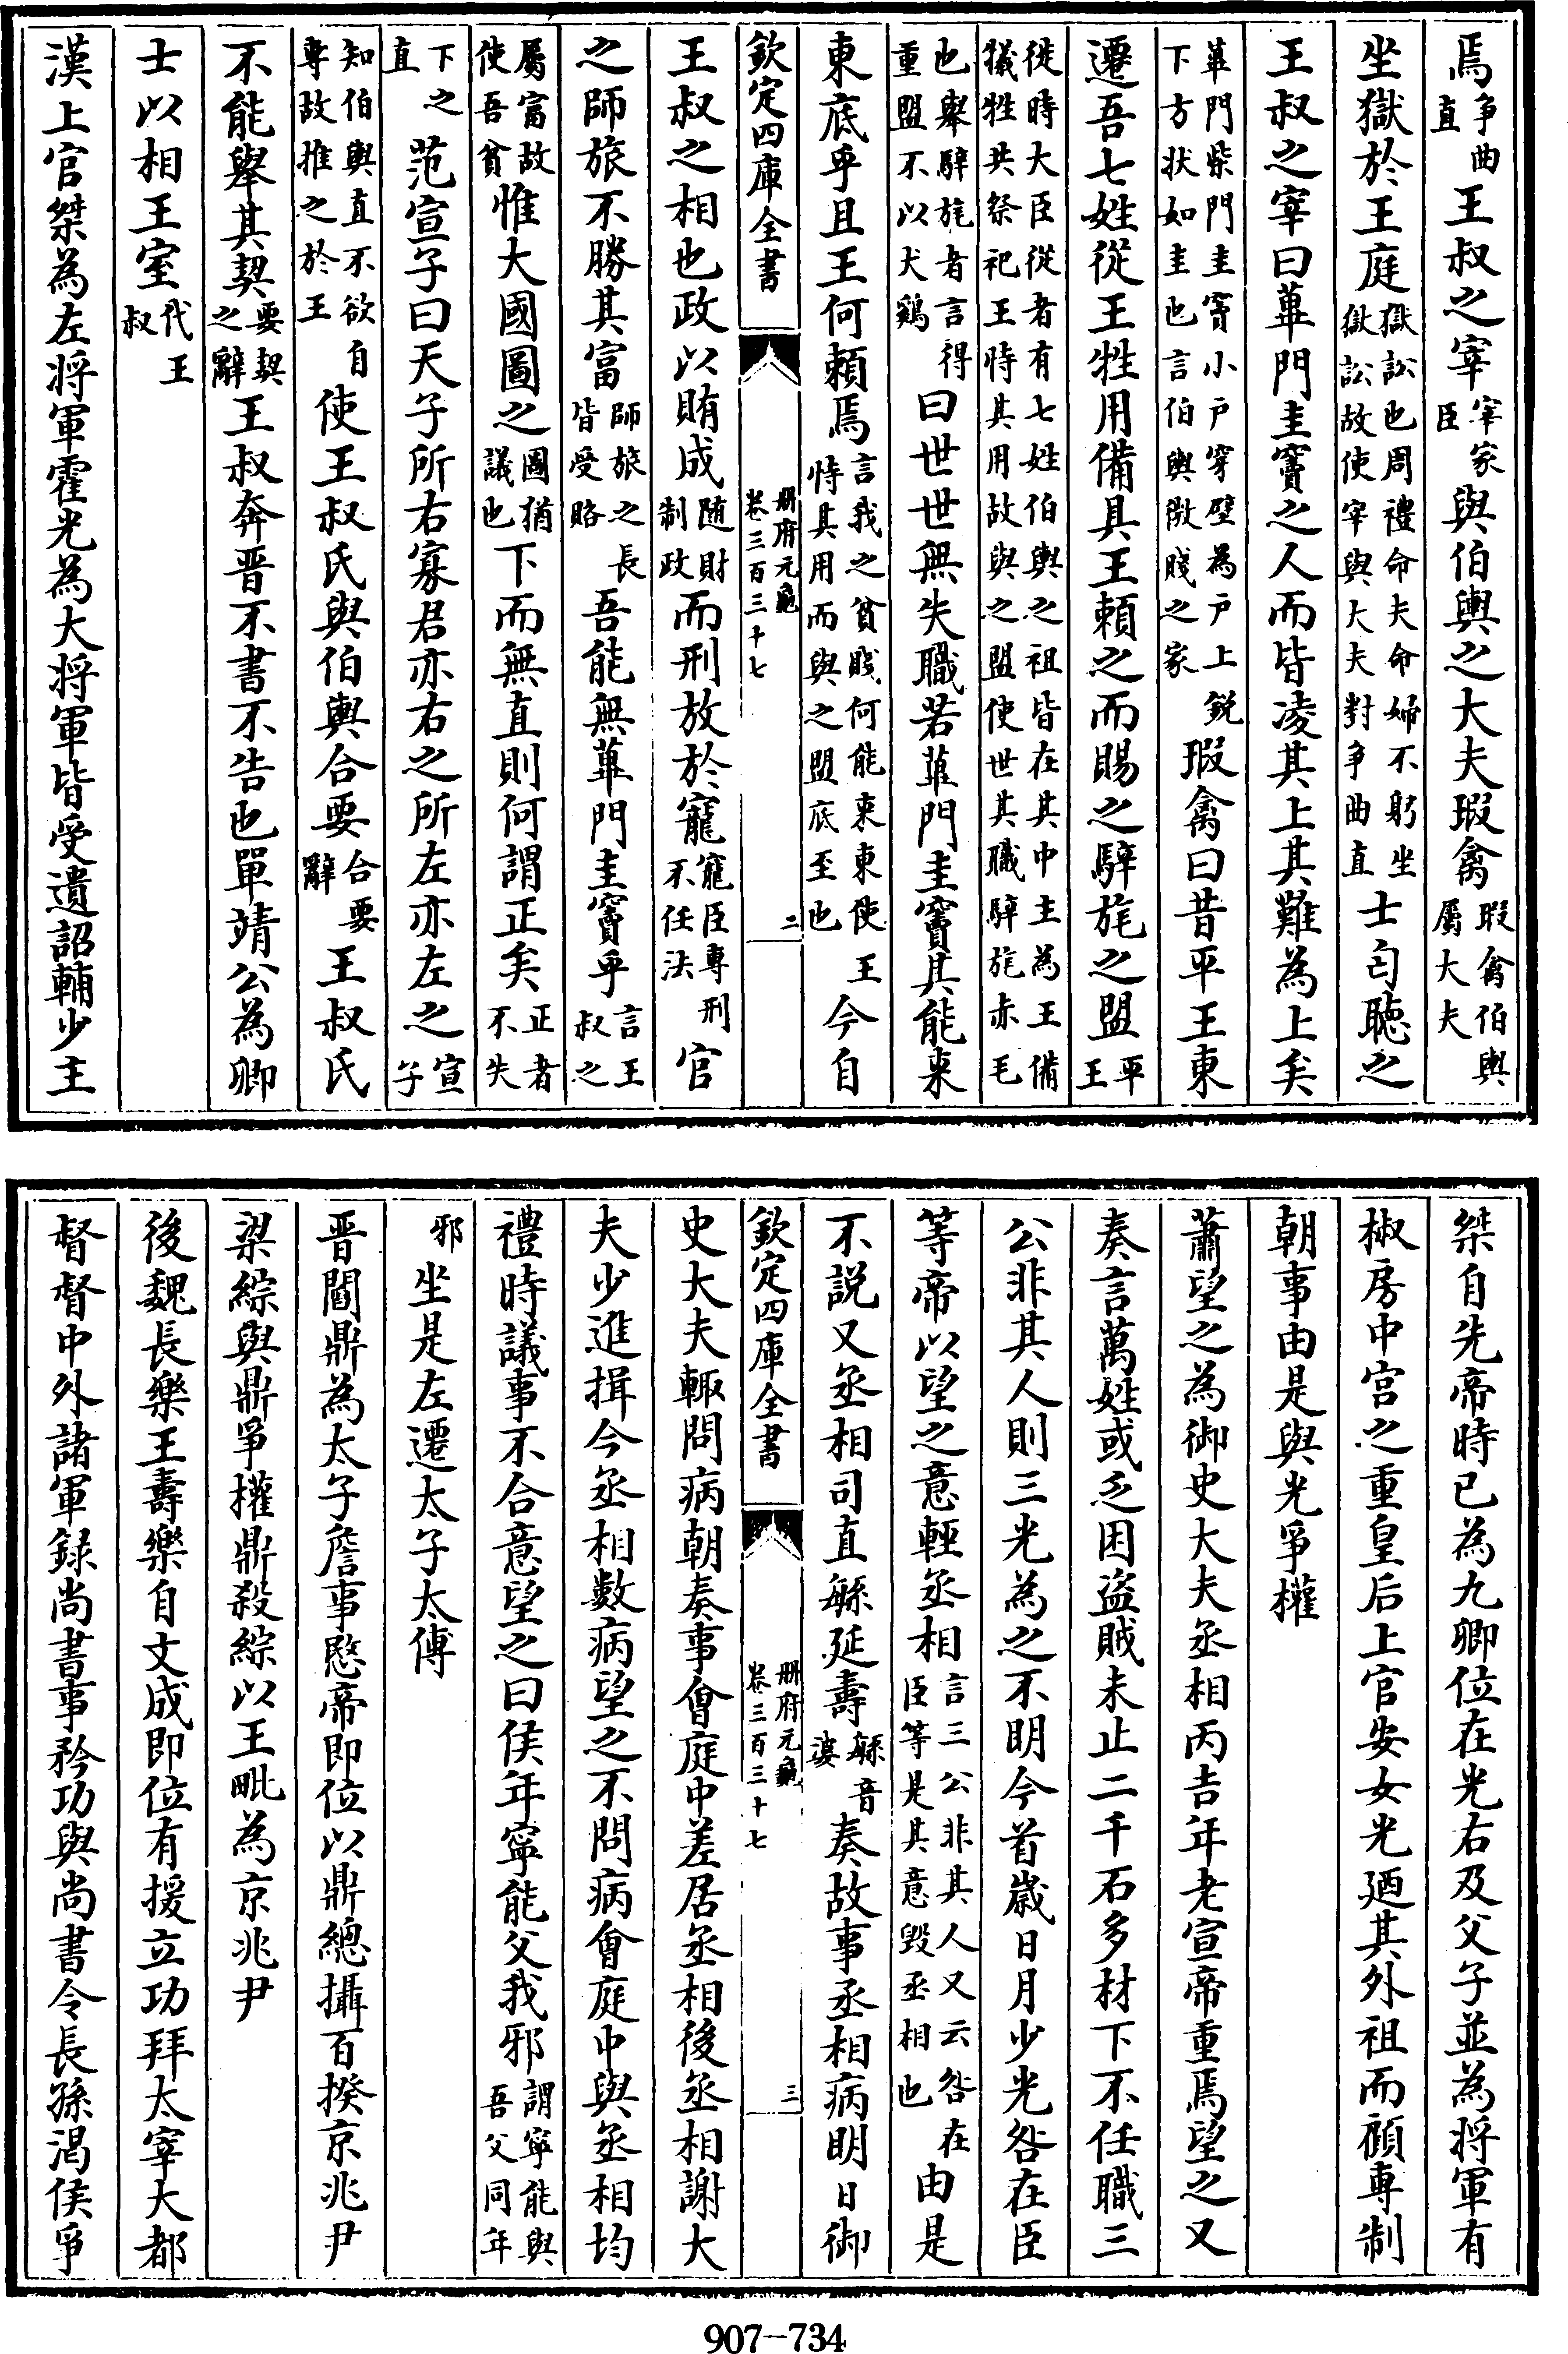 焉爭曲直王叔之宰宰家臣與伯輿之大夫瑕禽瑕禽伯輿屬大夫
坐獄於王庭獄訟也周禮命夫命婦不躬坐獄訟故使宰與大夫對爭曲直士匄聽之
王叔之宰曰蓽門圭竇之人而皆凌其上其難為上矣
蓽門柴門圭竇小戶穿壁為戶上銳下方狀如圭也言伯輿微賤之家瑕禽曰昔平王東
遷吾七姓從王牲用備具王賴之而賜之騂旄之盟平王
徙時大臣從者有七姓伯輿之祖皆在其中主為王備犧牲共祭祀王恃其用故與之盟使世其職騂旄赤毛
也舉騂旄者言得重盟不以犬鷄曰世世無失職若蓽門圭竇其能來
東底乎且王何賴焉言我之貧賤何能來東使王恃其用而與之盟底至也今自
欽定四庫全書 冊府元龜卷三百三十七 二
王叔之相也政以賄成隨財制政而刑放於寵寵臣專刑不任法官
之師旅不勝其富師旅之長皆受賂吾能無蓽門圭竇乎言王叔之
屬富故使吾貧惟大國圖之圖猶議也下而無直則何謂正矣正者不失
下之直范宣子曰天子所右寡君亦右之所左亦左之宣子
知伯輿直不欲自專故推之於王使王叔氏與伯輿合要合要辭王叔氏
不能舉其契要契之辭王叔奔晉不書不告也單靖公為卿
士以相王室代王叔
漢上官桀為左將軍霍光為大將軍皆受遺詔輔少主
桀自先帝時已為九卿位在光右及父子並為將軍有
椒房中宮之重皇后上官安女光廼其外祖而顧專制
朝事由是與光爭權
蕭望之為御史大夫丞相丙吉年老宣帝重焉望之又
奏言萬姓或乏困盜賊未止二千石多材下不任職三
公非其人則三光為之不明今首歲日月少光咎在臣
等帝以望之意輕丞相言三公非其人又云咎在臣等是其意毀丞相也由是
不說又丞相司直緐延壽緐音婆奏故事丞相病明日御
欽定四庫全書 冊府元龜卷三百三十七 三
史大夫輙問病朝奏事會庭中差居丞相後丞相謝大
夫少進揖今丞相數病望之不問病會庭中與丞相均
禮時議事不合意望之曰侯年寧能父我邪謂寧能與吾父同年
邪坐是左遷太子太傅
晉閻鼎為太子詹事愍帝即位以鼎總攝百揆京兆尹
梁綜與鼎爭權鼎殺綜以王毗為京兆尹
後魏長樂王壽樂自文成即位有援立功拜太宰大都
督督中外諸軍録尚書事矜功與尚書令長孫渴侯爭
907-734